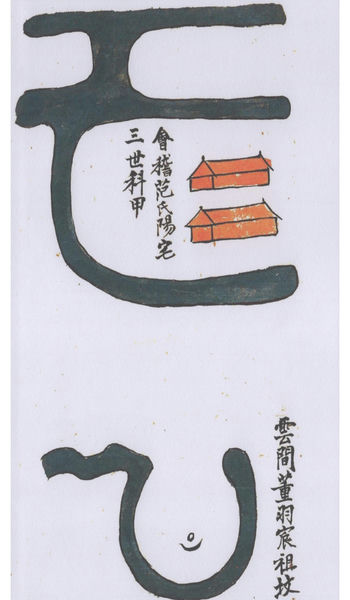 會稽范氏陽宅
三世科甲
雲間董羽宸祖坟